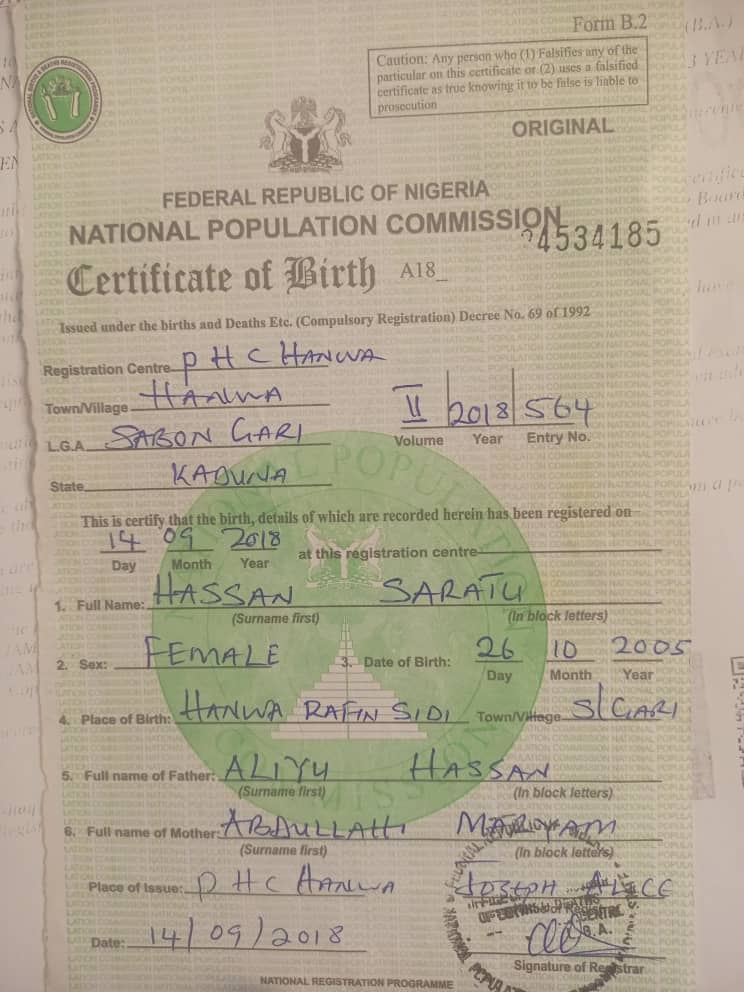 Form B.2
Caution: Any person who (1) Falsifies any of the
particular on this certificate or (2) uses a falsified
certificate as true knowing it to be false is liable to
prosecution
ORIGINAL
FEDERAL REPUBLIC OF NIGERIA
NATIONAL POPULATION COMMISSION
4534185
Certificate of Birth A18_
Issued under the births and Deaths Etc. (Compulsory Registration) Decree No. 69 of 1992
Registration Centre PHC HANWA
Town/Village HANWA
II 2018 564
Volume Year Entry No.
L.G.A SABON GARI
State KADUNA
This is certify that the birth, details of which are recorded herein has been registered on
14 09 2018 at this registration centre
Day Month Year
1. Full Name: HASSAN SARATU
(Surname first) (In block letters)
2. Sex: FEMALE 3. Date of Birth: 26 10 2005
Day Month Year
4. Place of Birth: HANWA RAFIN SIDI Town/Village S/GARI
5. Full name of Father: ALIYU HASSAN
(Surname first) (In block letters)
6. Full name of Mother: ABDULLAHI MARIYAM
(Surname first) (In block letters)
Place of Issue: PHC HANWA JOSEPH ALICE
Date: 14/09/2018
Signature of Registrar
NATIONAL REGISTRATION PROGRAMME